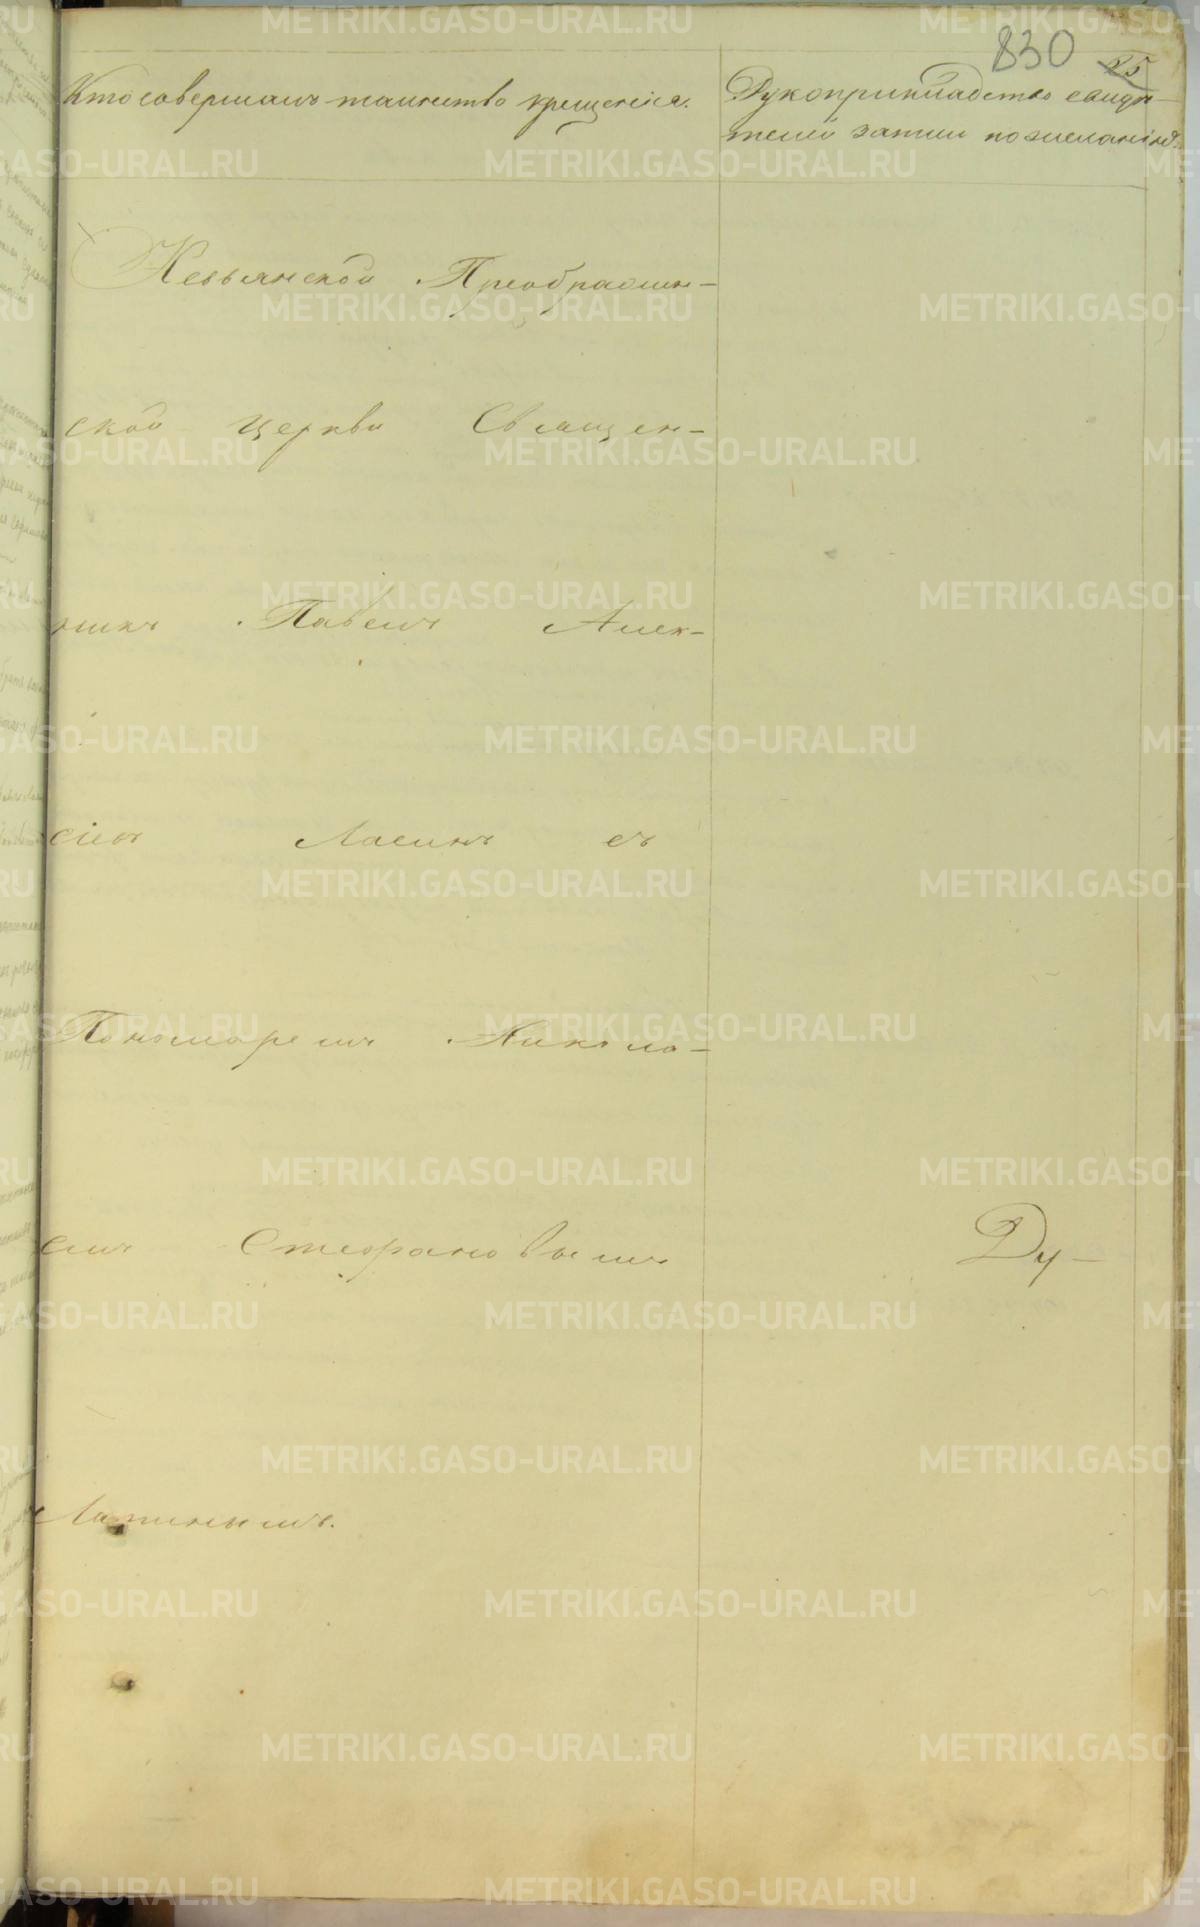 830 25
Кто совершалъ таинство крещенія.
Рукоприкладство свидѣ-
телей записи по желанію.
Невьянской Преображен-
ской Церкви Священ-
никъ Павелъ Алек-
сіевъ съ
Пономаремъ Никола-
емъ Стефановымъ
Ду-
Лапинымъ.
METRIKI.GASO-URAL.RU